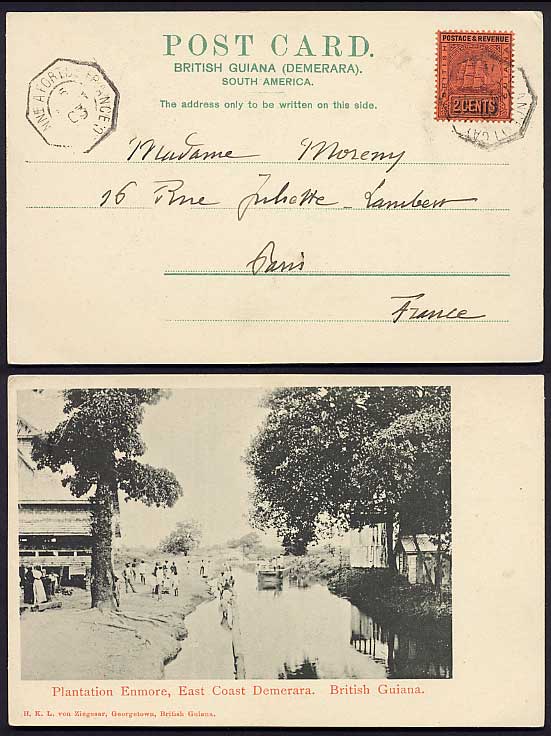 POST CARD.
BRITISH GUIANA (DEMERARA).
SOUTH AMERICA.
The address only to be written on this side.
POSTAGE & REVENUE
BRITISH
GUIANA
2 CENTS
Madame Moreny
16 Rue Juliette-Lamber
Paris
France
Plantation Enmore, East Coast Demerara. British Guiana.
H. K. L. von Ziegesar, Georgetown, British Guiana.